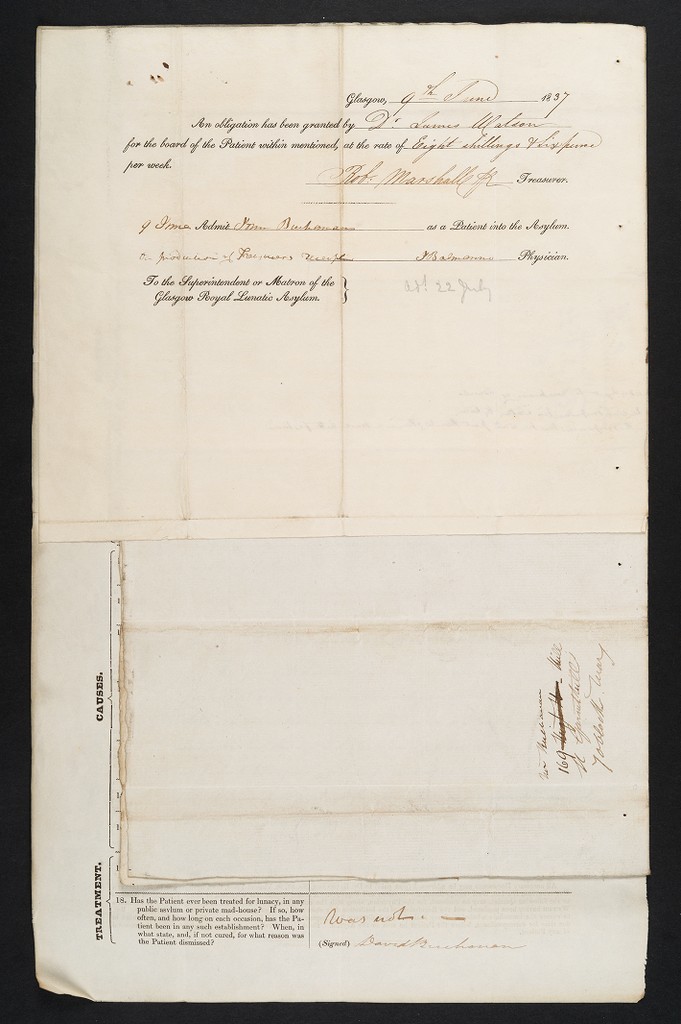 Glasgow, 9th June 1837
An obligation has been granted by Dr. James Watson
for the board of the Patient within mentioned, at the rate of Eight shillings & sixpence
per week.
Robt. Marshall Treasurer.
9 June Admit John Buchanan as a Patient into the Asylum.
on production of Treasurers receipt Balmanno Physician.
To the Superintendent or Matron of the
Glasgow Royal Lunatic Asylum.
22 July
CAUSES.
TREATMENT.
169 Hill
18. Has the Patient ever been treated for lunacy, in any
public asylum or private mad-house? If so, how
often, and how long on each occasion, has the Pa-
tient been in any such establishment? When, in
what state, and, if not cured, for what reason was
the Patient dismissed?
Was not. —
(Signed) David Buchanan